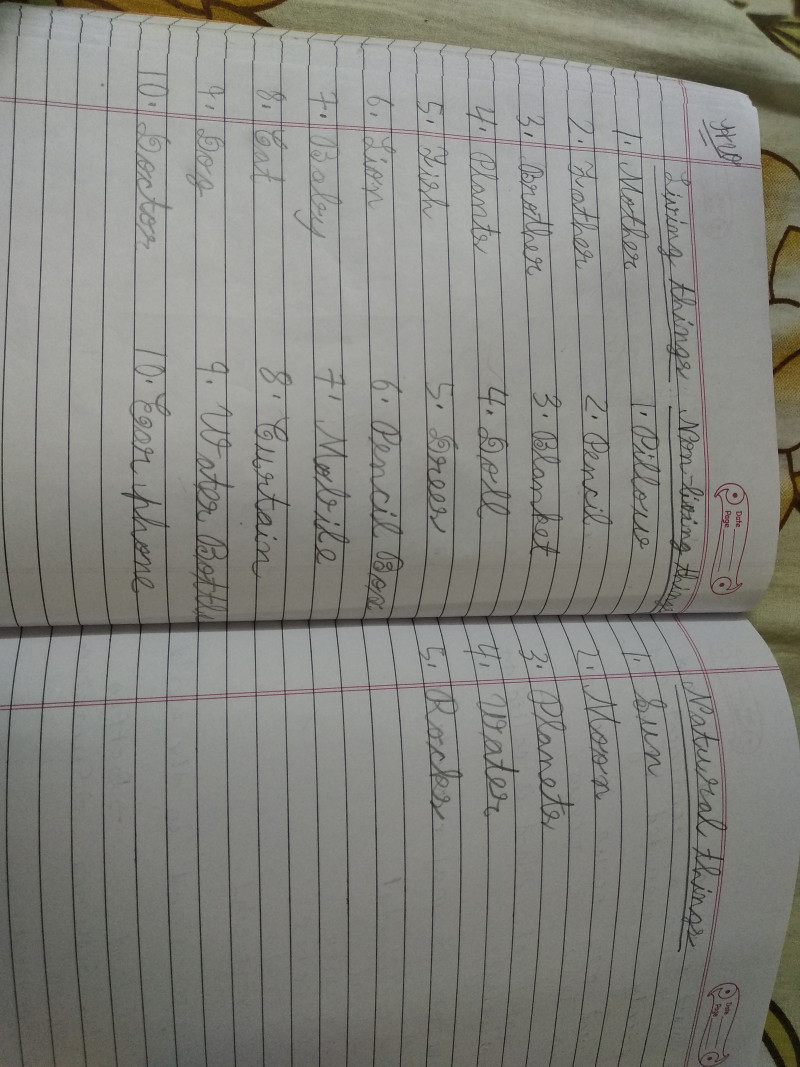 HW
Living things Non-living things
1. Mother 1. Pillow
2. Father 2. Pencil
3. Brother 3. Blanket
4. Plants 4. Doll
5. Fish 5. Dress
6. Lion 6. Pencil Box
7. Baby 7. Mobile
8. Cat 8. Curtain
9. Dog 9. Water Bottle
10. Doctor 10. Ear phone
Date
Page
Natural things
1. Sun
2. Moon
3. Planets
4. Water
5. Rocks
Date
Page